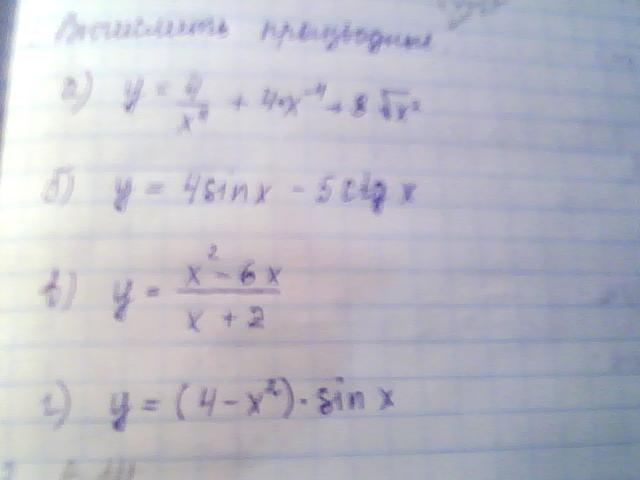 Вычислить производные
а) y = 4/x⁴ + 4·x⁻⁴ + 8√x²
б) y = 4sinx - 5ctg x
в) y = x² - 6x / x + 2
г) y = (4 - x²)·sin x